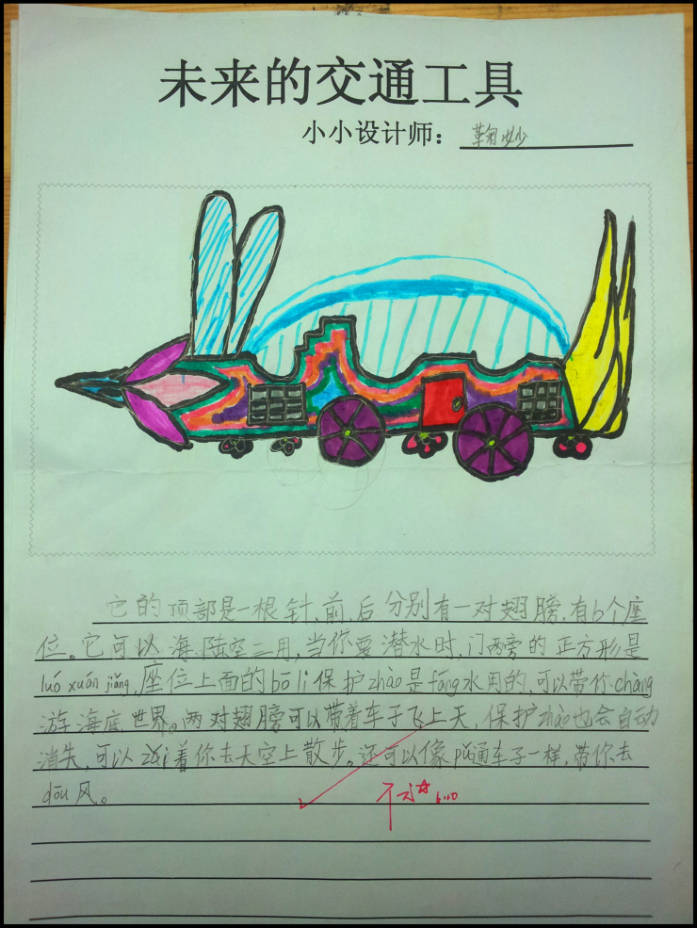 未来的交通工具
小小设计师：
它的顶部是一根针，前、后分别有一对翅膀，有6个座
位。它可以海、陆、空三用，当你要潜水时，门两旁的正方形是
luó xuán jiǎng，座位上面的bō li保护zhào是fáng水用的，可以带你chàng
游海底世界。两对翅膀可以带着车子飞上天，保护zhào也会自动
消失，可以zài着你去天空上散步。还可以像pǔ通车子一样，带你去
dōu风。